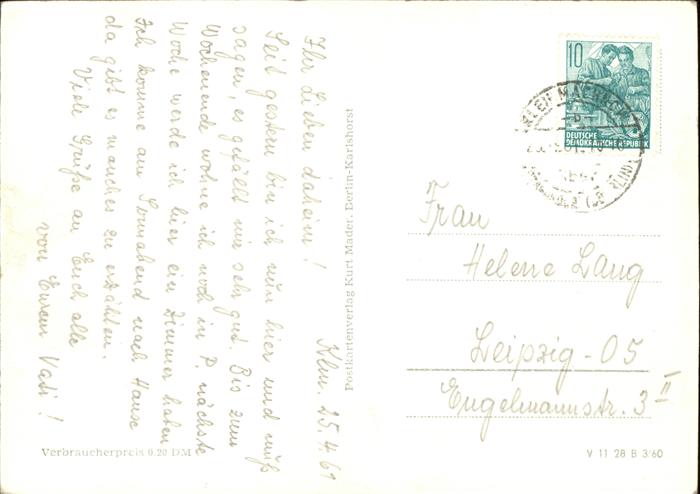 Klm. 25.4.61
Ihr Lieben daheim!
Seit gestern bin ich nun hier und muß
sagen, es gefällt mir sehr gut. Bis zum
Wochenende wohne ich noch in P. nächste
Woche werde ich hier ein Zimmer haben
Ich komme am Sonnabend nach Hause
da gibt es manches zu erzählen.
Viele Grüße an Euch alle
von Eurem Vati!
Postkartenverlag Kurt Mader, Berlin-Karlshorst
10
DEUTSCHE
DEMOKRATISCHE REPUBLIK
Frau
Helene Lang
Leipzig-O5
Engelmannstr. 3 II
Verbraucherpreis 0.20 DM
V 11 28 B 3/60